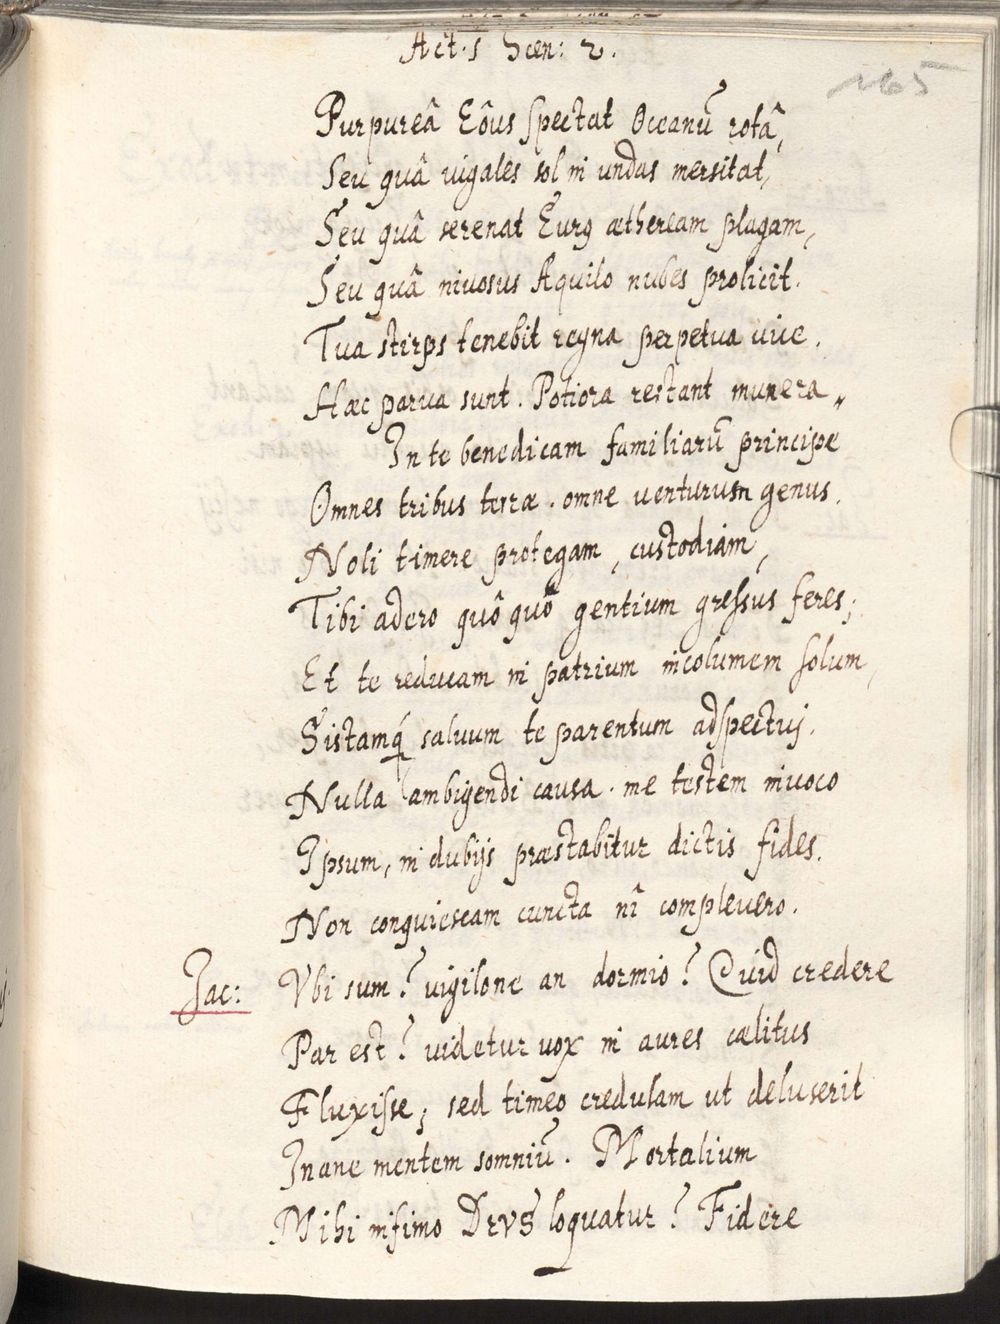 Act. s Scen: 2.
165
Purpureâ Eôus spectat Oceanū rotâ,
Seu quâ uigales sol in undas mersitat,
Seu quâ serenat Eurꝯ aetheream plagam,
Seu quâ niuosus Aquilo nubes prolicit.
Tua stirps tenebit regna perpetua uice.
Haec parua sunt. Potiora restant munera,,
In te benedicam familiarū principe
Omnes tribus terrae. omne venturum genus.
Noli timere protegam, custodiam,
Tibi adero quô quô gentium gressus feres;
Et te reducam in patrium incolumem solum,
Sistamq́ saluum te parentum adspectuj.
Nulla ambigendi causa. me testem inuoco
Ipsum, in dubijs praestabitur dictis fides.
Non conquiescam cuncta nî complevero.
Jac: Vbi sum? vigilone an dormio? Quid credere
Par est? uidetur uox in aures caelitus
Fluxisse; sed timeo credulam ut deluserit
Inane mentem somniū. Mortalium
Mihi infimo DEVS loquatur? Fidere